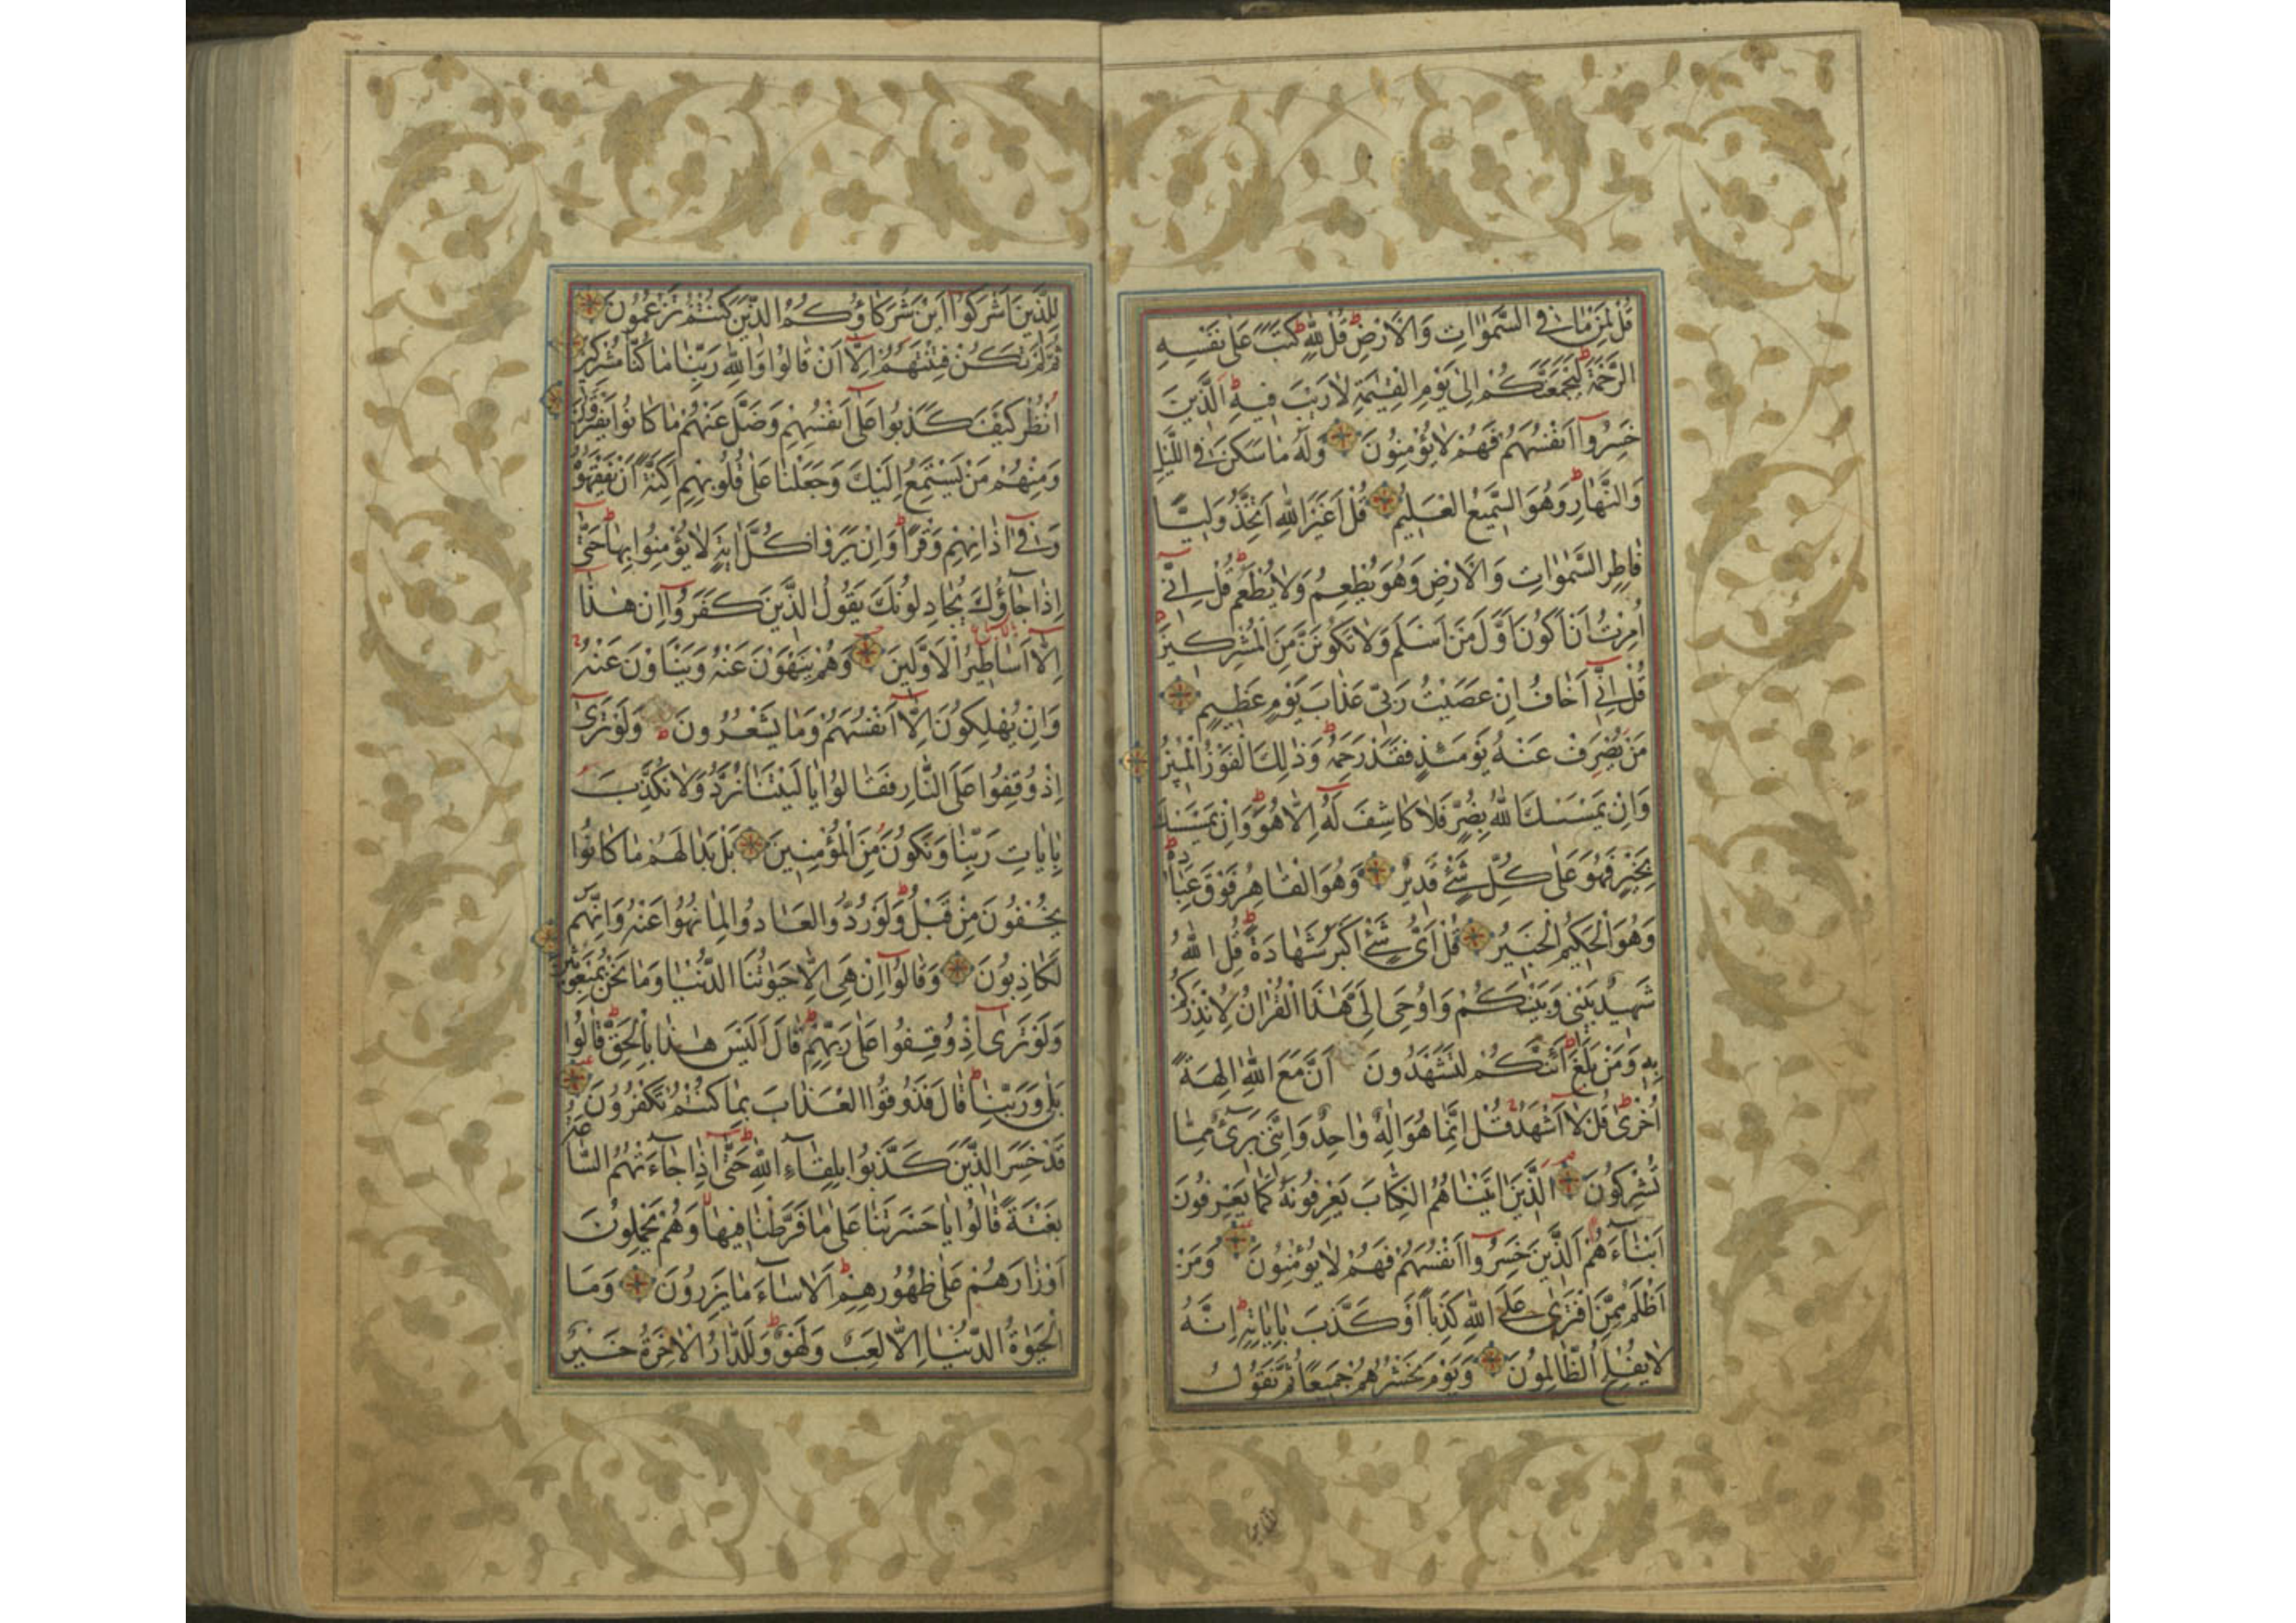 قُلْ لِمَنْ مَا فِي السَّمٰوَاتِ وَالْاَرْضِ قُلْ لِلّٰهِ كَتَبَ عَلٰى نَفْسِهِ
الرَّحْمَةَ لَيَجْمَعَنَّكُمْ اِلٰى يَوْمِ الْقِيٰمَةِ لَا رَيْبَ فِيهِ اَلَّذِينَ
خَسِرُوا اَنْفُسَهُمْ فَهُمْ لَا يُؤْمِنُونَ وَلَهُ مَا سَكَنَ فِي اللَّيْلِ
وَالنَّهَارِ وَهُوَ السَّمِيعُ الْعَلِيمُ قُلْ اَغَيْرَ اللّٰهِ اَتَّخِذُ وَلِيًّا
فَاطِرِ السَّمٰوَاتِ وَالْاَرْضِ وَهُوَ يُطْعِمُ وَلَا يُطْعَمُ قُلْ اِنِّي
اُمِرْتُ اَنْ اَكُونَ اَوَّلَ مَنْ اَسْلَمَ وَلَا تَكُونَنَّ مِنَ الْمُشْرِكِينَ
قُلْ اِنِّي اَخَافُ اِنْ عَصَيْتُ رَبِّي عَذَابَ يَوْمٍ عَظِيمٍ
مَنْ يُصْرَفْ عَنْهُ يَوْمَئِذٍ فَقَدْ رَحِمَهُ وَذٰلِكَ الْفَوْزُ الْمُبِينُ
وَاِنْ يَمْسَسْكَ اللّٰهُ بِضُرٍّ فَلَا كَاشِفَ لَهُ اِلَّا هُوَ وَاِنْ يَمْسَسْكَ
بِخَيْرٍ فَهُوَ عَلٰى كُلِّ شَيْءٍ قَدِيرٌ وَهُوَ الْقَاهِرُ فَوْقَ عِبَادِهِ
وَهُوَ الْحَكِيمُ الْخَبِيرُ قُلْ اَيُّ شَيْءٍ اَكْبَرُ شَهَادَةً قُلِ اللّٰهُ
شَهِيدٌ بَيْنِي وَبَيْنَكُمْ وَاُوحِيَ اِلَيَّ هٰذَا الْقُرْاٰنُ لِاُنْذِرَكُمْ
بِهِ وَمَنْ بَلَغَ اَئِنَّكُمْ لَتَشْهَدُونَ اَنَّ مَعَ اللّٰهِ اٰلِهَةً
اُخْرٰى قُلْ لَا اَشْهَدُ قُلْ اِنَّمَا هُوَ اِلٰهٌ وَاحِدٌ وَاِنَّنِي بَرِيءٌ مِمَّا
تُشْرِكُونَ اَلَّذِينَ اٰتَيْنَاهُمُ الْكِتَابَ يَعْرِفُونَهُ كَمَا يَعْرِفُونَ
اَبْنَاءَهُمْ اَلَّذِينَ خَسِرُوا اَنْفُسَهُمْ فَهُمْ لَا يُؤْمِنُونَ وَمَنْ
اَظْلَمُ مِمَّنِ افْتَرٰى عَلَى اللّٰهِ كَذِبًا اَوْ كَذَّبَ بِاٰيَاتِهِ اِنَّهُ
لَا يُفْلِحُ الظَّالِمُونَ وَيَوْمَ نَحْشُرُهُمْ جَمِيعًا ثُمَّ نَقُولُ
لِلَّذِينَ اَشْرَكُوا اَيْنَ شُرَكَاؤُكُمُ الَّذِينَ كُنْتُمْ تَزْعُمُونَ
ثُمَّ لَمْ تَكُنْ فِتْنَتُهُمْ اِلَّا اَنْ قَالُوا وَاللّٰهِ رَبِّنَا مَا كُنَّا مُشْرِكِينَ
اُنْظُرْ كَيْفَ كَذَبُوا عَلٰى اَنْفُسِهِمْ وَضَلَّ عَنْهُمْ مَا كَانُوا يَفْتَرُونَ
وَمِنْهُمْ مَنْ يَسْتَمِعُ اِلَيْكَ وَجَعَلْنَا عَلٰى قُلُوبِهِمْ اَكِنَّةً اَنْ يَفْقَهُوهُ
وَفِي اٰذَانِهِمْ وَقْرًا وَاِنْ يَرَوْا كُلَّ اٰيَةٍ لَا يُؤْمِنُوا بِهَا حَتّٰى
اِذَا جَاؤُكَ يُجَادِلُونَكَ يَقُولُ الَّذِينَ كَفَرُوا اِنْ هٰذَا
اِلَّا اَسَاطِيرُ الْاَوَّلِينَ وَهُمْ يَنْهَوْنَ عَنْهُ وَيَنْاَوْنَ عَنْهُ
وَاِنْ يُهْلِكُونَ اِلَّا اَنْفُسَهُمْ وَمَا يَشْعُرُونَ وَلَوْ تَرٰى
اِذْ وُقِفُوا عَلَى النَّارِ فَقَالُوا يَا لَيْتَنَا نُرَدُّ وَلَا نُكَذِّبَ
بِاٰيَاتِ رَبِّنَا وَنَكُونَ مِنَ الْمُؤْمِنِينَ بَلْ بَدَا لَهُمْ مَا كَانُوا
يُخْفُونَ مِنْ قَبْلُ وَلَوْ رُدُّوا لَعَادُوا لِمَا نُهُوا عَنْهُ وَاِنَّهُمْ
لَكَاذِبُونَ وَقَالُوا اِنْ هِيَ اِلَّا حَيٰوتُنَا الدُّنْيَا وَمَا نَحْنُ بِمَبْعُوثِينَ
وَلَوْ تَرٰى اِذْ وُقِفُوا عَلٰى رَبِّهِمْ قَالَ اَلَيْسَ هٰذَا بِالْحَقِّ قَالُوا
بَلٰى وَرَبِّنَا قَالَ فَذُوقُوا الْعَذَابَ بِمَا كُنْتُمْ تَكْفُرُونَ
قَدْ خَسِرَ الَّذِينَ كَذَّبُوا بِلِقَاءِ اللّٰهِ حَتّٰى اِذَا جَاءَتْهُمُ السَّاعَةُ
بَغْتَةً قَالُوا يَا حَسْرَتَنَا عَلٰى مَا فَرَّطْنَا فِيهَا وَهُمْ يَحْمِلُونَ
اَوْزَارَهُمْ عَلٰى ظُهُورِهِمْ اَلَا سَاءَ مَا يَزِرُونَ وَمَا
الْحَيٰوةُ الدُّنْيَا اِلَّا لَعِبٌ وَلَهْوٌ وَلَلدَّارُ الْاٰخِرَةُ خَيْرٌ